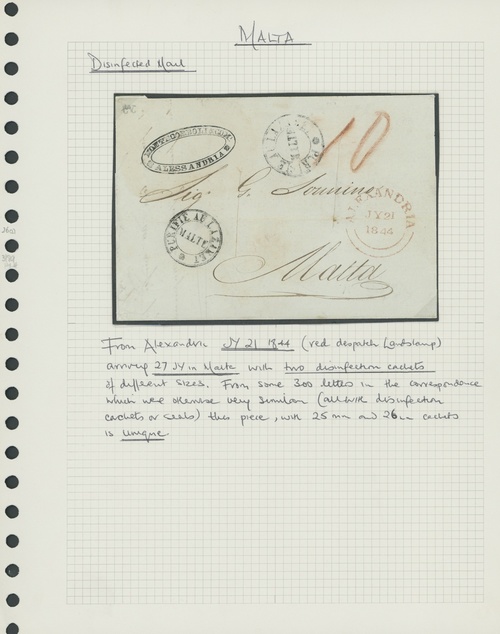 MALTA
Disinfected Mail
ALESSANDRIA
PURIFIÉ AU LAZARET
MALTE
10
Sig. G.
ALEXANDRIA
JY 21
1844
PURIFIÉ AU LAZARET
MALTE
Malta
From Alexandria JY 21 1844 (red despatch handstamp)
arriving 27 JY in Malta with two disinfection cachets
of different sizes. From some 300 letters in the correspondence
which were otherwise very similar (all with disinfection
cachets or seals) this piece, with 25mm and 26mm cachets
is unique